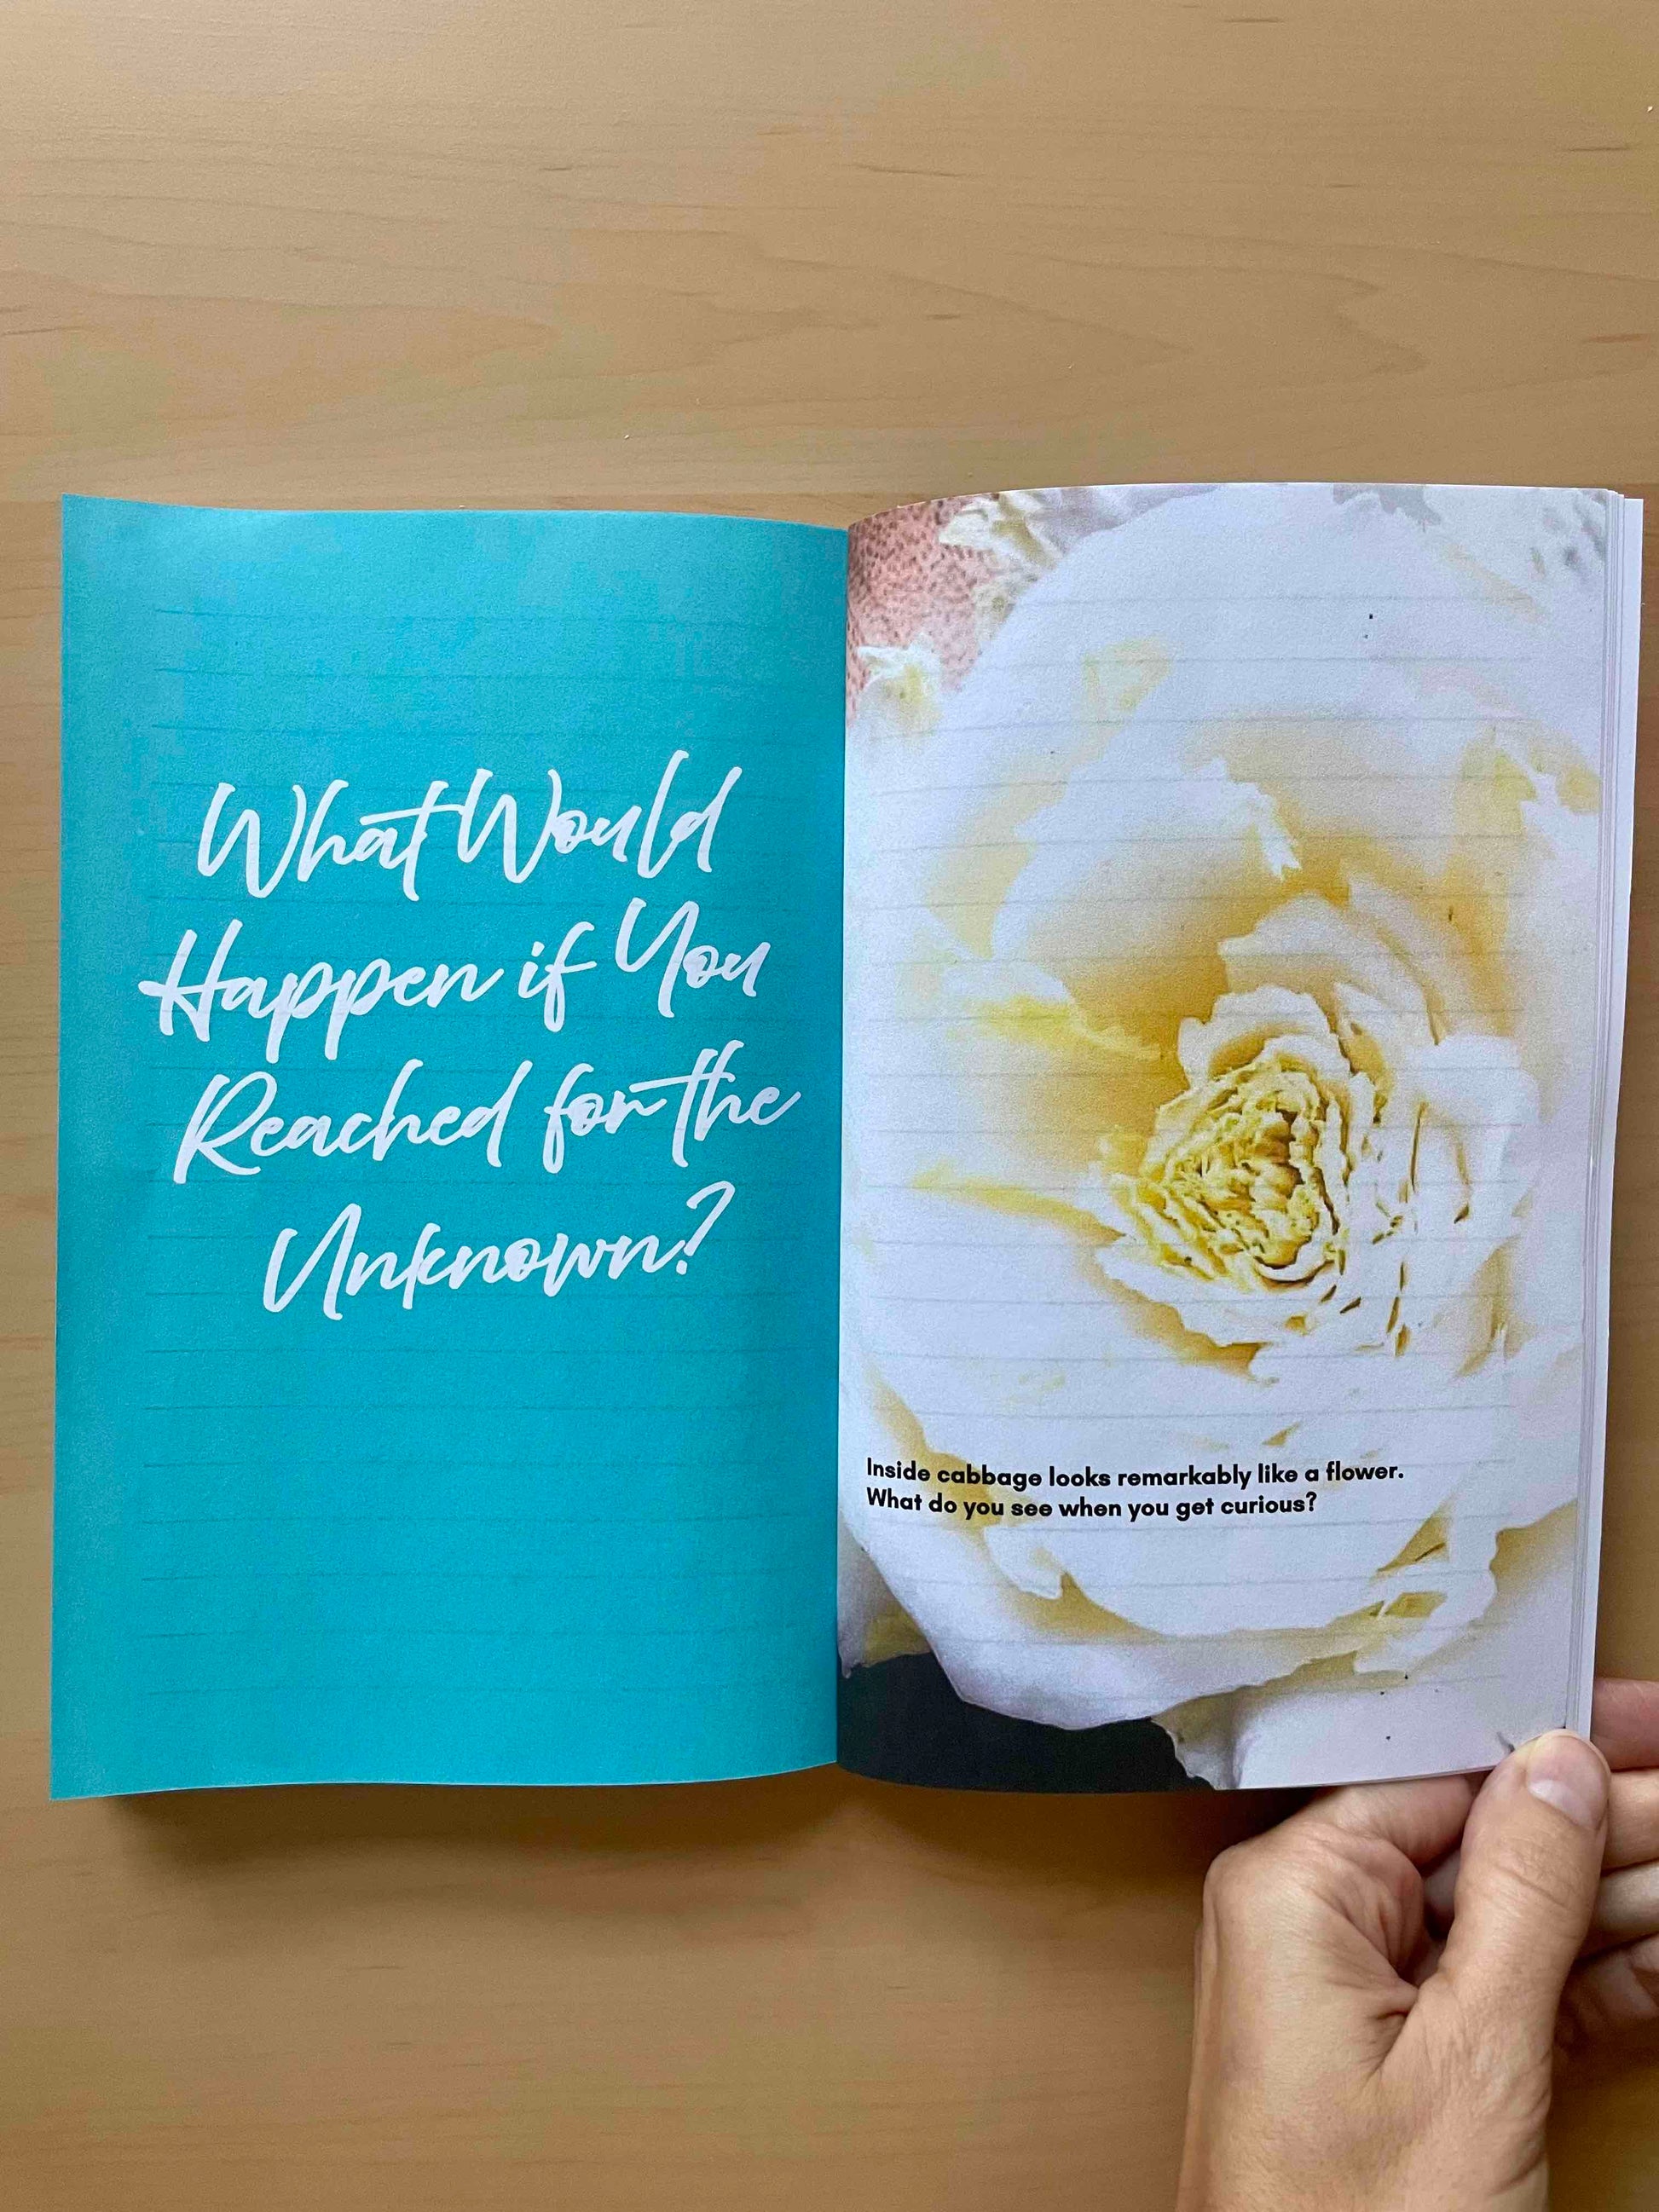 What Would
Happen if You
Reached for the
Unknown?
Inside cabbage looks remarkably like a flower.
What do you see when you get curious?